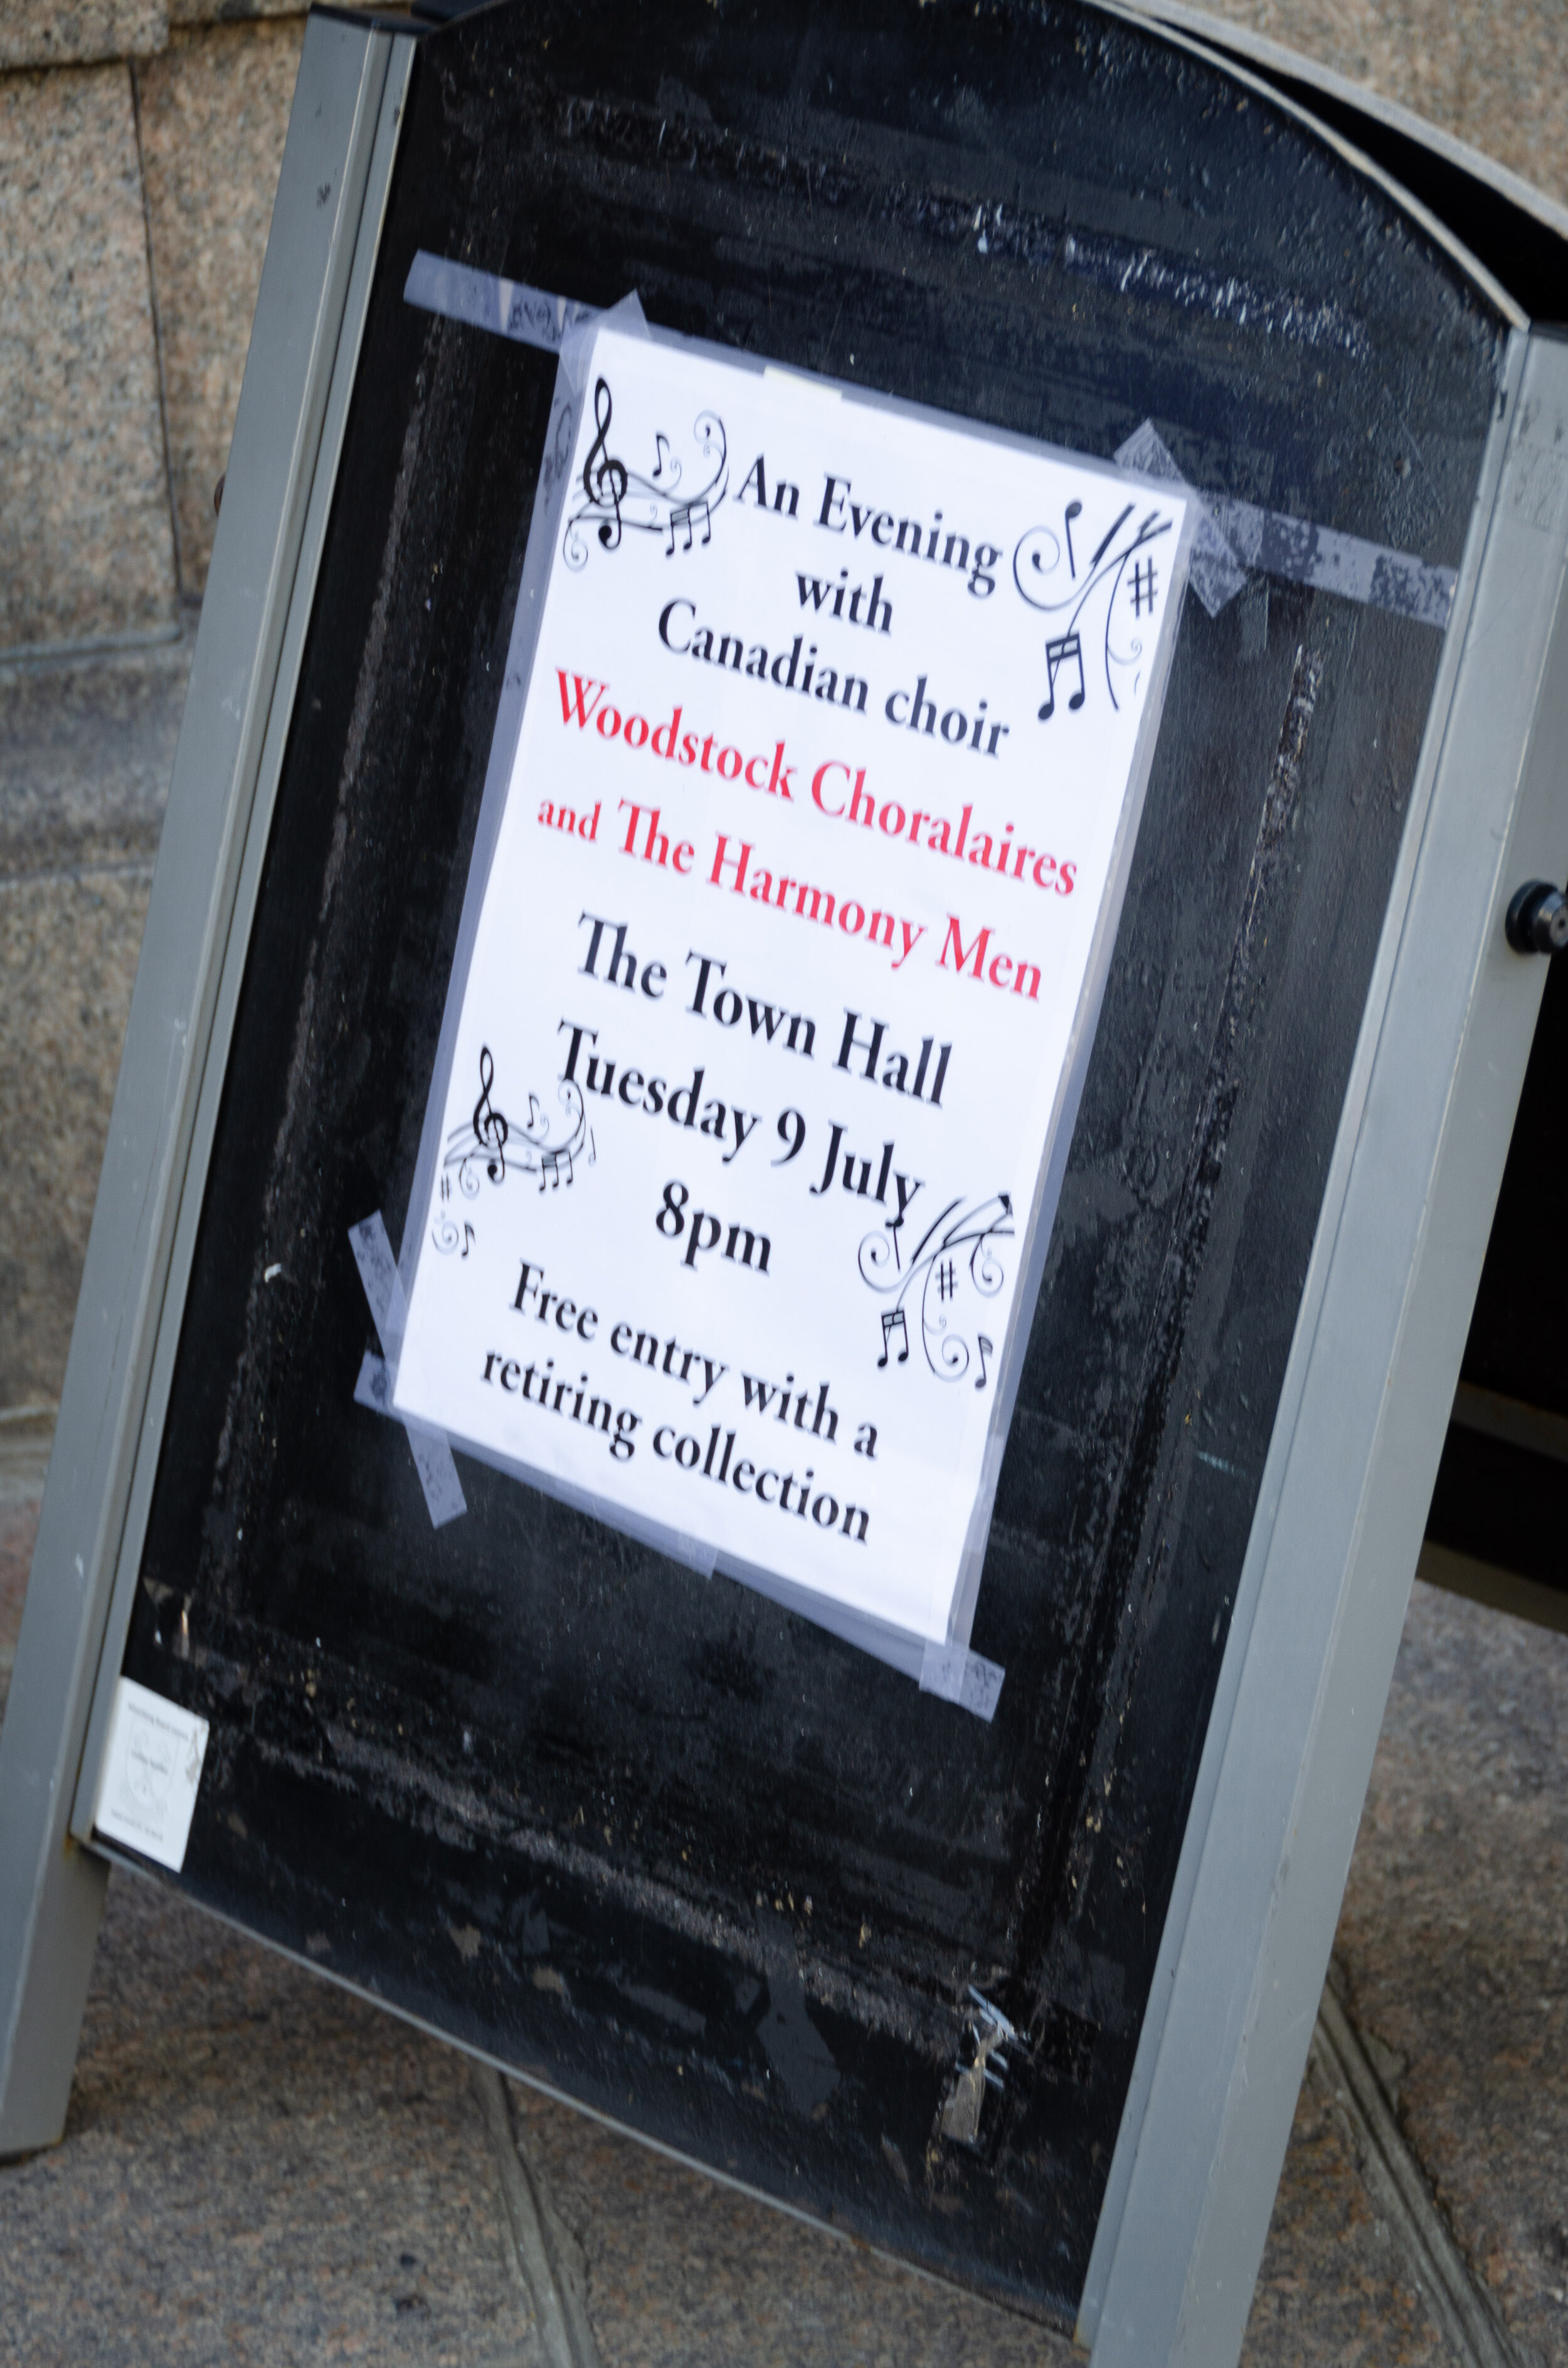 An Evening
with
Canadian choir
Woodstock Choralaires
and The Harmony Men
The Town Hall
Tuesday 9 July
8pm
Free entry with a
retiring collection